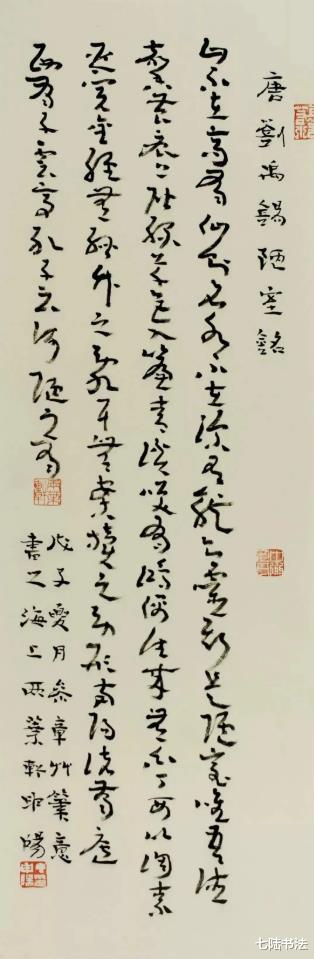 唐劉禹錫陋室銘
山不在高有仙則名水不在深有龍則靈斯是陋室唯吾德
馨苔痕上階綠草色入簾青談笑有鴻儒往來無白丁可以調素
琴閱金經無絲竹之亂耳無案牘之勞形南陽諸葛廬
西蜀子雲亭孔子云何陋之有
戊子夏月參章竹筆意
書之海上兩葉軒申暘
七陆书法